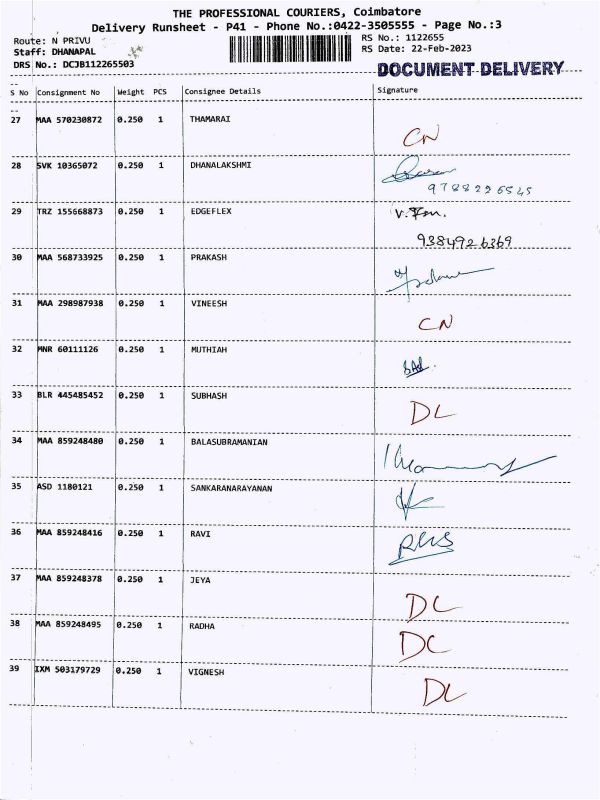 THE PROFESSIONAL COURIERS, Coimbatore
Delivery Runsheet - P41 - Phone No.:0422-3505555 - Page No.:3
Route: N PRIVU
Staff: DHANAPAL
DRS No.: DCJB112265503
RS No.: 1122655
RS Date: 22-Feb-2023
DOCUMENT DELIVERY
S No Consignment No Weight PCS Consignee Details Signature
27 MAA 570230872 0.250 1 THAMARAI CN
28 SVK 10365072 0.250 1 DHANALAKSHMI
9788226545
29 TRZ 155668873 0.250 1 EDGEFLEX
9384926369
30 MAA 568733925 0.250 1 PRAKASH
31 MAA 298987938 0.250 1 VINEESH CN
32 MNR 60111126 0.250 1 MUTHIAH
33 BLR 445485452 0.250 1 SUBHASH DL
34 MAA 859248480 0.250 1 BALASUBRAMANIAN
35 ASD 1180121 0.250 1 SANKARANARAYANAN
36 MAA 859248416 0.250 1 RAVI
37 MAA 859248378 0.250 1 JEYA DL
38 MAA 859248495 0.250 1 RADHA DL
39 IXM 503179729 0.250 1 VIGNESH DL